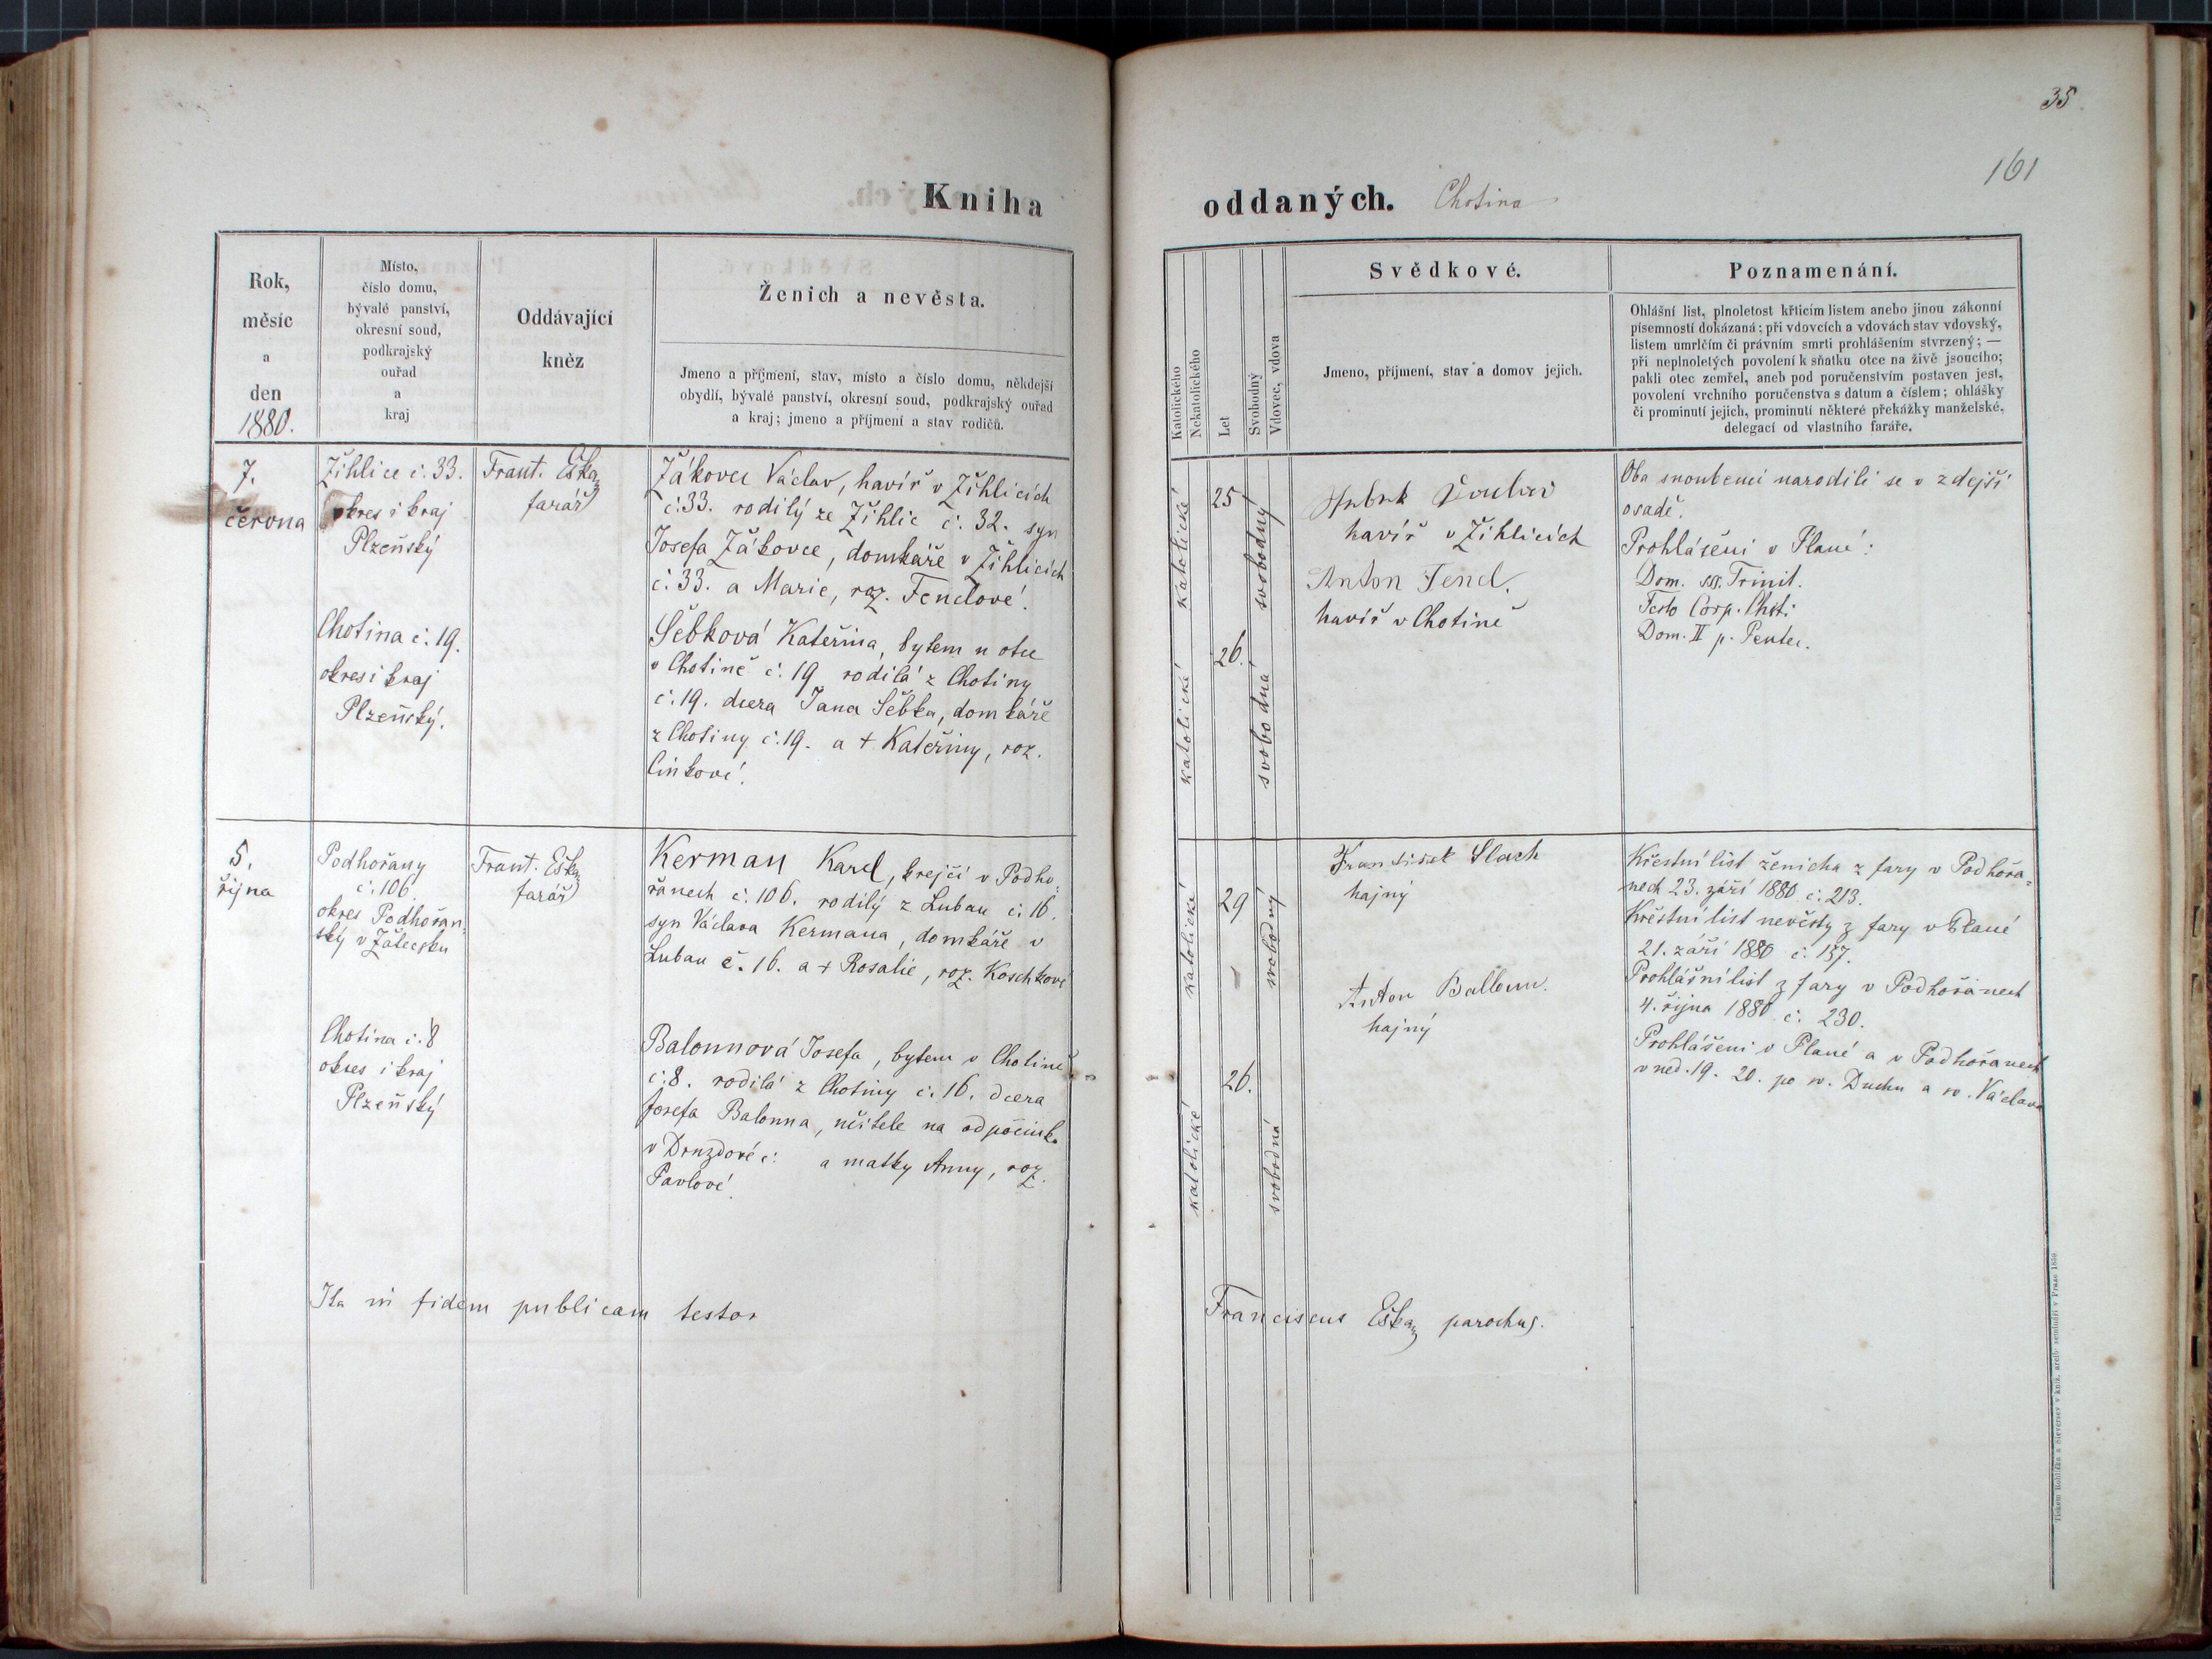 35.
161
Kniha
oddaných. Chotina
Rok,
měsíc
a
den
1880.
Místo,
číslo domu,
bývalé panství,
okresní soud,
podkrajský
ouřad
a
kraj
Oddávající
kněz
Ženich a nevěsta.
Jmeno a příjmení, stav, místo a číslo domu, někdejší
obydlí, bývalé panství, okresní soud, podkrajský ouřad
a kraj; jmeno a příjmení a stav rodičů.
Katolického
Nekatolického
Let
Svobodný
Vdovec, vdova
Svědkové.
Jmeno, příjmení, stav a domov jejich.
Poznamenání.
Ohlášní list, plnoletost křticím listem anebo jinou zákonní
písemností dokázaná; při vdovcích a vdovách stav vdovský,
listem umrlčím či právním smrti prohlášením stvrzený; —
při neplnoletých povolení k sňatku otce na živě jsoucího;
pakli otec zemřel, aneb pod poručenstvím postaven jest,
povolení vrchního poručenstva s datum a číslem; ohlášky
či prominutí jejich, prominutí některé překážky manželské,
delegací od vlastního faráře.
7.
června
Žihlice č. 33.
okres i kraj
Plzeňský
Chotina č. 19.
okres i kraj
Plzeňský.
Frant. Eška
farář
Žákovec Václav, havíř v Žihlicích
č. 33. rodilý ze Žihlic č. 32. syn
Josefa Žákovce, domkáře v Žihlicích
č. 33. a Marie, roz. Fenclové.
Šebková Kateřina, bytem u otce
v Chotině č. 19 rodilá z Chotiny
č. 19. dcera Jana Šebka, domkáře
z Chotiny č. 19. a + Kateřiny, roz.
katolické
katolické
25
26.
svobodný
svobodná
havíř v Žihlicích
Anton Fencl.
havíř v Chotině
Oba snoubenci narodili se v zdejší
osadě.
Prohlášeni v Plané:
Dom. ss. Trinit.
Festo Corp. Chsti
Dom. II p. Pentec.
5.
října
Podhořany
č. 106
okres Podhořan-
ský v Žatecsku
Chotina č. 8
okres i kraj
Plzeňský
Frant. Eška
farář
Kerman Karel, krejčí v Podho-
řanech č. 106. rodilý z Luban č. 16.
syn Václava Kermana, domkáře v
Luban č. 16. a + Rosalie, roz. Koschkové
Balounová Josefa, bytem v Chotině
č. 8. rodilá z Chotiny č. 16. dcera
Josefa Balouna, učitele na odpočinku
v Druzdové č. a matky Anny, roz.
Pavlové.
katolické
katolické
29
26.
svobodný
svobodná
František Slach
hajný
Anton Balloun.
hajný
Křestní list ženicha z fary v Podhořa-
nech 23. září 1880 č. 213.
Křestní list nevěsty z fary v Plané
21. září 1880 č. 157.
Prohlášní list z fary v Podhořanech
4. října 1880 č. 230.
Prohlášeni v Plané a v Podhořanech
v ned. 19. 20. po sv. Duchu a sv. Václava
Ita in fidem publicam testor
Franciscus Eška parochus.